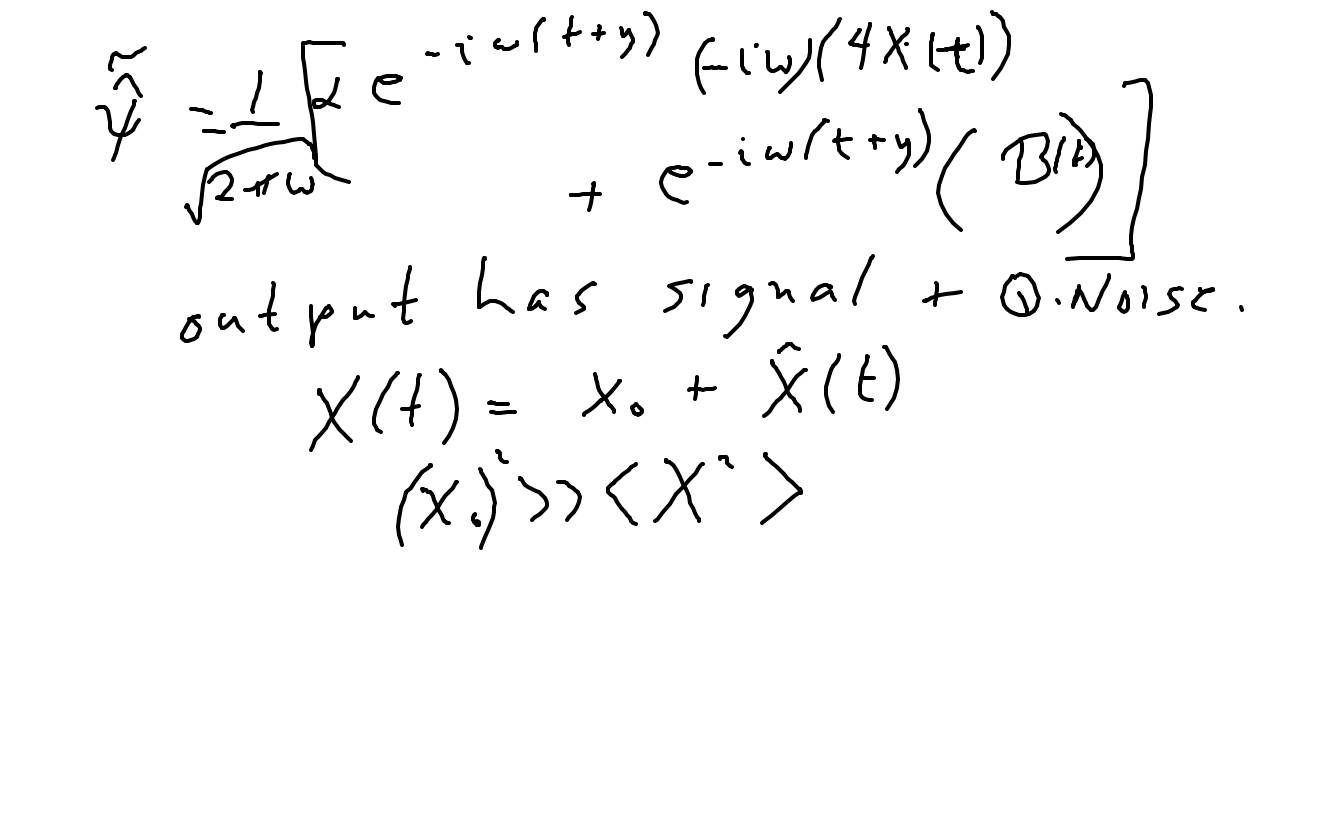 ψ̂̃ = 1/√(2πω) [α e^{-iω(t+y)} (-iω)(4X(t))
+ e^{-iω(t+y)} (B(t))]
output has signal + Q.Noise.
X(t) = X₀ + X̂(t)
(X₀)² >> <X²>